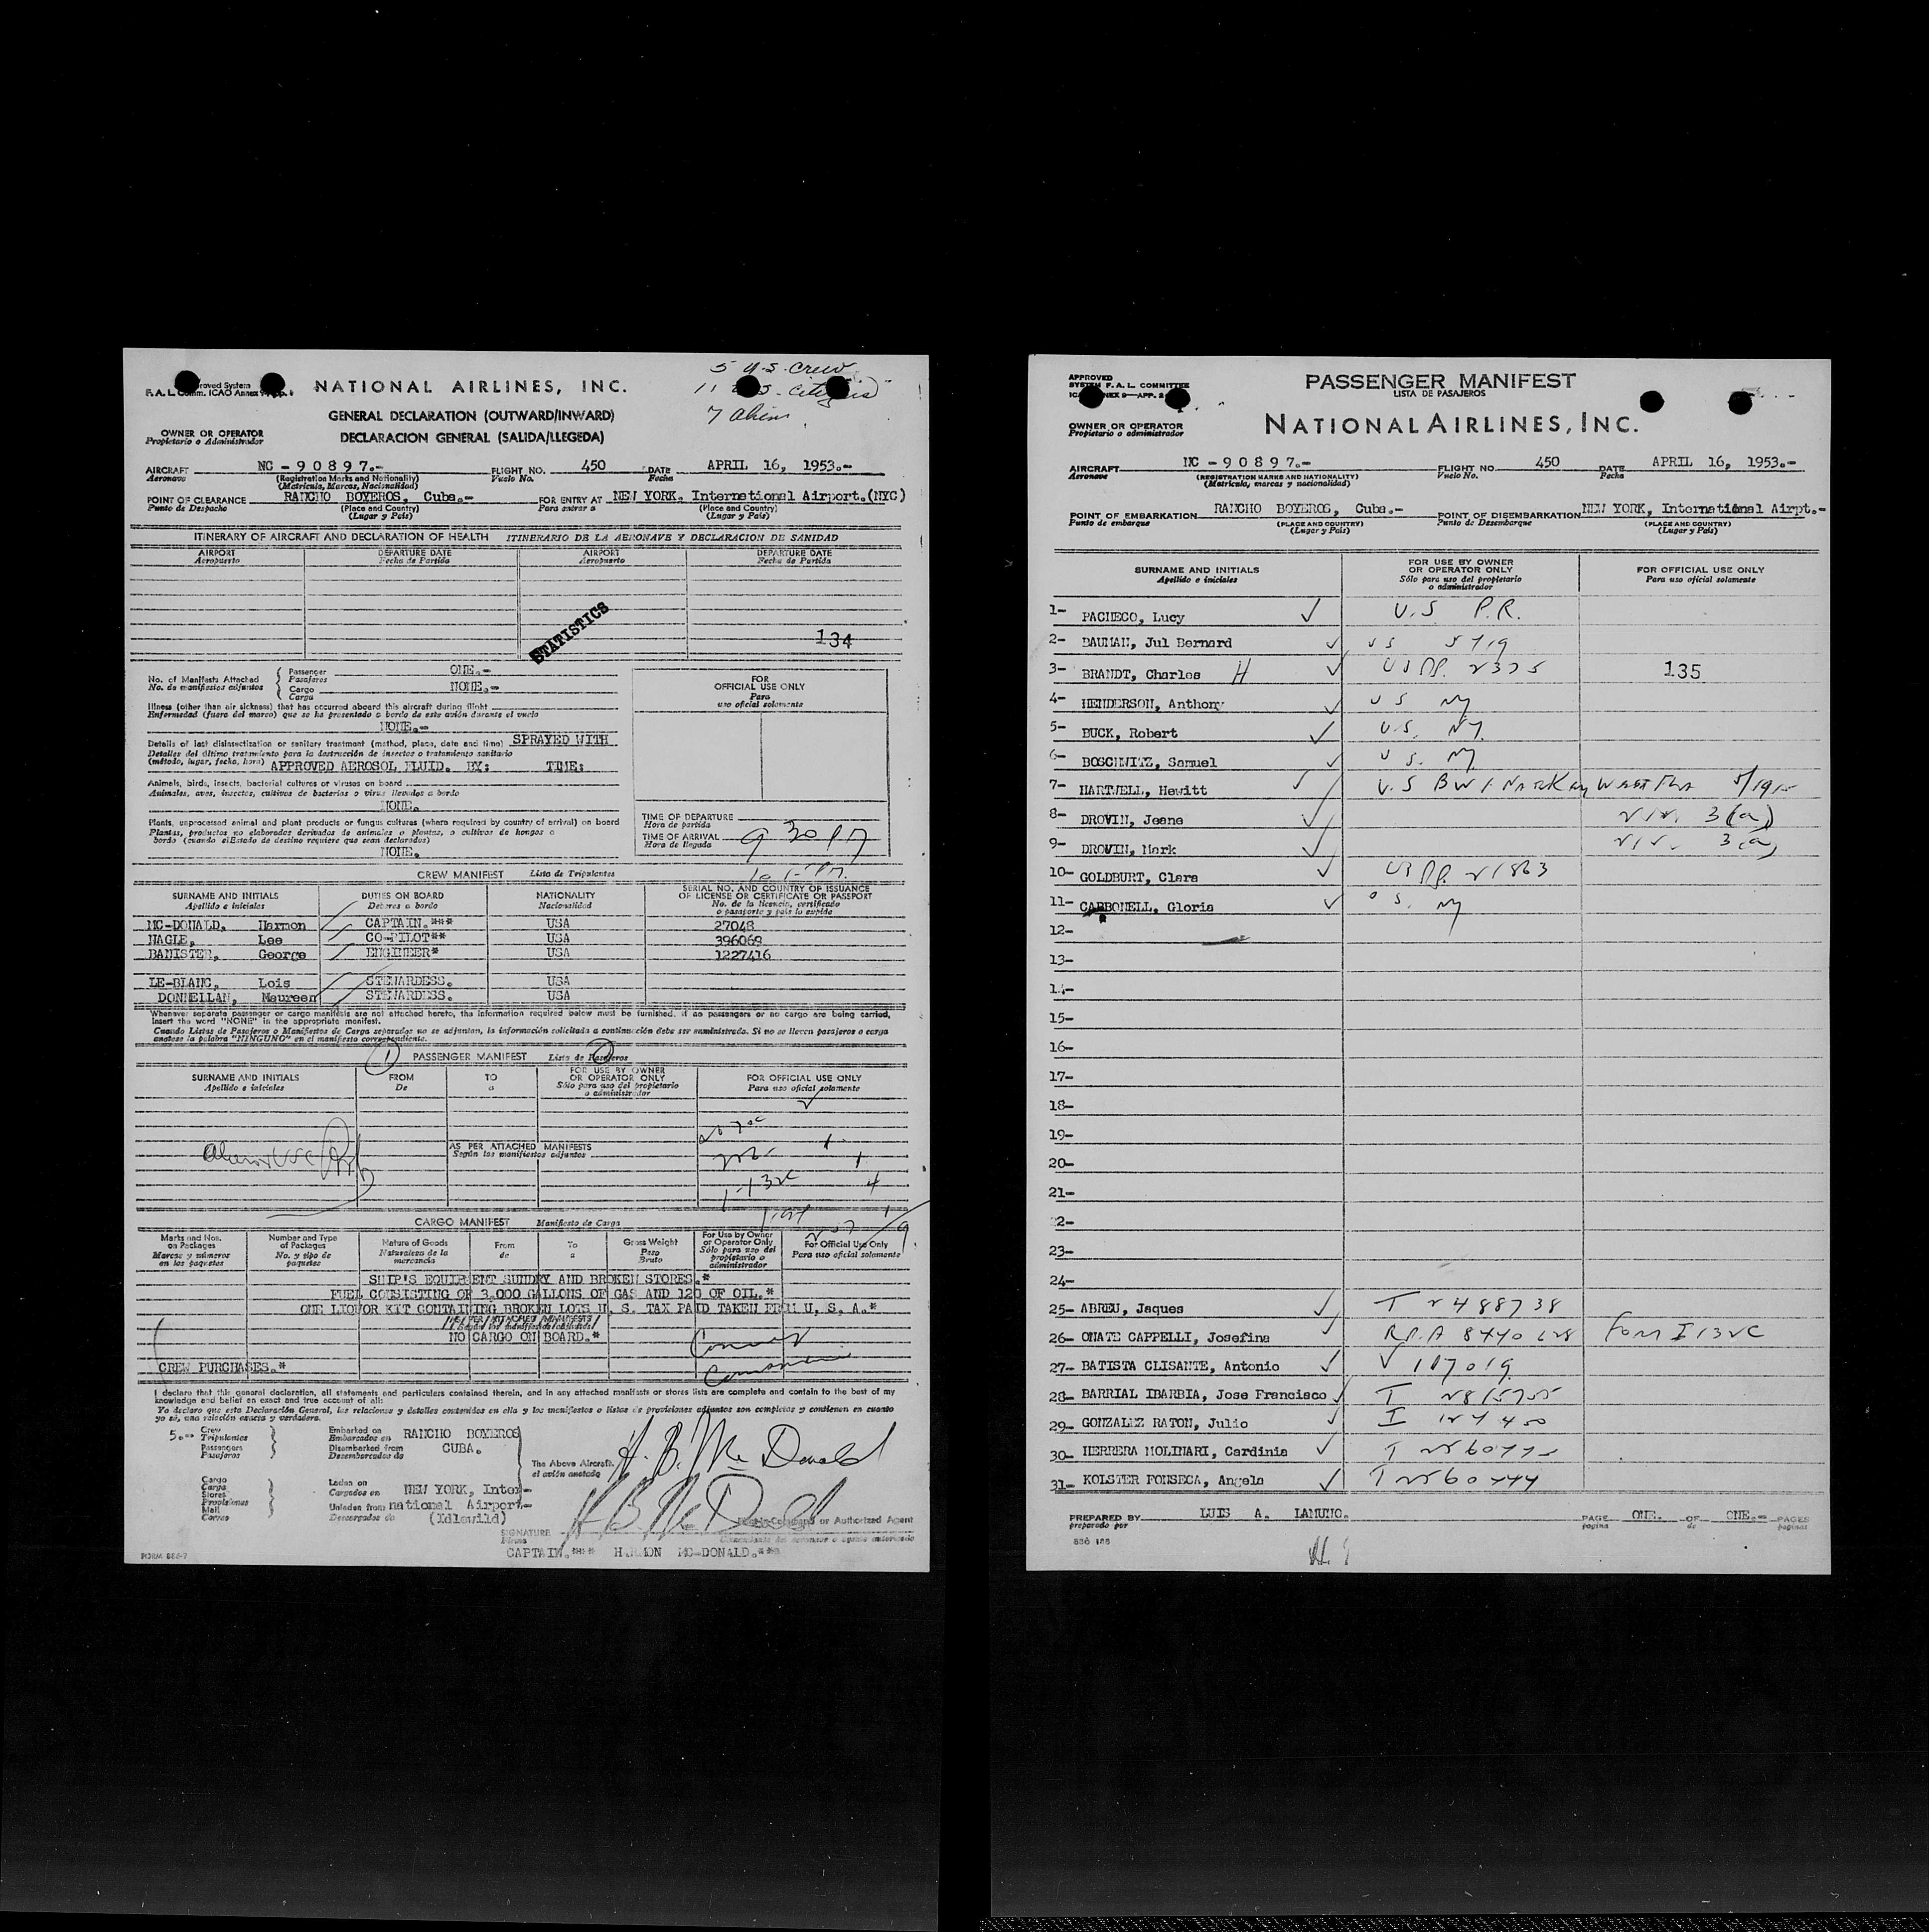 5 U.S. crew
11 U.S. citizens
7 aliens
roved System
F. A. L. Comm. ICAO Annex
NATIONAL AIRLINES, INC.
GENERAL DECLARATION (OUTWARD/INWARD)
OWNER OR OPERATOR
Propietario o Administrador
DECLARACION GENERAL (SALIDA/LLEGEDA)
AIRCRAFT NC - 9 0 8 9 7.- FLIGHT NO. 450 DATE APRIL 16, 1953.-
Aeronave (Registration Marks and Nationality) Vuelo No. Fecha
(Matrícula, Marcas, Nacionalidad)
POINT OF CLEARANCE RANCHO BOYEROS, Cuba.- FOR ENTRY AT NEW YORK, International Airport.(NYC)
Punto de Despacho (Place and Country) Para entrar a (Place and Country)
(Lugar y País) (Lugar y País)
ITINERARY OF AIRCRAFT AND DECLARATION OF HEALTH ITINERARIO DE LA AERONAVE Y DECLARACION DE SANIDAD
AIRPORT DEPARTURE DATE AIRPORT DEPARTURE DATE
Aeropuerto Fecha de Partida Aeropuerto Fecha de Partida
STATISTICS
134
No. of Manifests Attached Passenger ONE.-
No. de manifiestos adjuntos Pasajeros
Cargo NONE.-
Carga
FOR
OFFICIAL USE ONLY
Para
uso oficial solamente
Illness (other than air sickness) that has occurred aboard this aircraft during flight
Enfermedad (fuera del mareo) que se ha presentado a bordo de este avión durante el vuelo
NONE.-
Details of last disinsectization or sanitary treatment (method, place, date and time) SPRAYED WITH
Detalles del último tratamiento para la destrucción de insectos o tratamiento sanitario
(método, lugar, fecha, hora) APPROVED AEROSOL FLUID. BY: TIME:
Animals, birds, insects, bacterial cultures or viruses on board
Animales, aves, insectos, cultivos de bacterias o virus llevados a bordo
NONE.
Plants, unprocessed animal and plant products or fungus cultures (where required by country of arrival) on board
Plantas, productos no elaborados derivados de animales o plantas, o cultivos de hongos a
bordo (cuando el Estado de destino requiere que sean declarados)
NONE.
TIME OF DEPARTURE
Hora de partida
TIME OF ARRIVAL 9 30 PM
Hora de llegada
CREW MANIFEST Lista de Tripulantes
SURNAME AND INITIALS DUTIES ON BOARD NATIONALITY SERIAL NO. AND COUNTRY OF ISSUANCE
OF LICENSE OR CERTIFICATE OR PASSPORT
Apellido e iniciales Deberes a bordo Nacionalidad No. de la licencia, certificado
o pasaporte y país lo expide
MC-DONALD, Harmon CAPTAIN.*** USA 27048
NAGLE, Lee CO-PILOT** USA 396069
BANISTER, George ENGINEER* USA 1227416
LE-BLANC, Lois STEWARDESS. USA
DONNELLAN, Maureen STEWARDESS. USA
Whenever separate passenger or cargo manifests are not attached hereto, the information required below must be furnished. If no passengers or no cargo are being carried,
insert the word "NONE" in the appropriate manifest.
Cuando Listas de Pasajeros o Manifiestos de Carga separados no se adjuntan, la información solicitada a continuación debe ser suministrada. Si no se lleven pasajeros o carga
anotese la palabra "NINGUNO" en el manifiesto correspondiente.
1 PASSENGER MANIFEST Lista de Pasajeros
SURNAME AND INITIALS FROM TO FOR USE BY OWNER
OR OPERATOR ONLY FOR OFFICIAL USE ONLY
Apellido e iniciales De a Sólo para uso del propietario
o administrador Para uso oficial solamente
AS PER ATTACHED MANIFESTS
Según los manifiestos adjuntos
CARGO MANIFEST Manifiesto de Carga
Marks and Nos.
on Packages
Marcas y números
en los paquetes
Number and Type
of Packages
No. y tipo de
paquetes
Nature of Goods
Naturaleza de la
mercancía
From
de
To
a
Gross Weight
Peso
Bruto
For Use by Owner
or Operator Only
Sólo para uso del
propietario o
administrador
For Official Use Only
Para uso oficial solamente
SHIP'S EQUIPMENT SUNDRY AND BROKEN STORES.*
FUEL CONSISTING OF 3,000 GALLONS OF GAS AND 120 OF OIL.*
ONE LIQUOR KIT CONTAINING BROKEN LOTS U. S. TAX PAID TAKEN FROM U. S. A.*
NO CARGO ON BOARD.*
CREW PURCHASES.*
I declare that this general declaration, all statements and particulars contained therein, and in any attached manifests or stores lists are complete and contain to the best of my
knowledge and belief an exact and true account of all:
Yo declaro que esta Declaración General, las relaciones y detalles contenidos en ella y los manifiestos o listas de provisiones adjuntos son completos y contienen en cuanto
yo sé, una relación exacta y verdadera.
5.-- Crew
Tripulantes
Passengers
Pasajeros
Embarked on RANCHO BOYEROS
Embarcados en
Disembarked from CUBA.
Desembarcados de
The Above Aircraft.
el avión anotado
H. B. Mc Donald
Cargo
Carga
Stores
Provisiones
Mail
Correo
Laden on NEW YORK, Inter-
Cargados en
Unladen from national Airport-
Descargados de (Idlewild)
H B Mc Donald
or Authorized Agent
SIGNATURE
Firma
CAPTAIN.*** HARMON MC-DONALD.***
FORM 886-7
APPROVED
SYSTEM F. A. L. COMMITTEE
PASSENGER MANIFEST
LISTA DE PASAJEROS
OWNER OR OPERATOR
Propietario o administrador
NATIONAL AIRLINES, INC.
AIRCRAFT NC - 9 0 8 9 7.- FLIGHT NO 450 DATE APRIL 16, 1953.-
Aeronave (REGISTRATION MARKS AND NATIONALITY) Vuelo No. Fecha
(Matrícula, marcas y nacionalidad)
POINT OF EMBARKATION RANCHO BOYEROS, Cuba.- POINT OF DISEMBARKATION NEW YORK, International Airpt.-
Punto de embarque (PLACE AND COUNTRY) Punto de Desembarque (PLACE AND COUNTRY)
(Lugar y País) (Lugar y País)
SURNAME AND INITIALS
Apellido e iniciales
FOR USE BY OWNER
OR OPERATOR ONLY
Sólo para uso del propietario
o administrador
FOR OFFICIAL USE ONLY
Para uso oficial solamente
1- PACHECO, Lucy U.S P.R.
2- BAUMAN, Jul Bernard US
3- BRANDT, Charles H 135
4- HENDERSON, Anthony US NY
5- BUCK, Robert U.S. NY.
6- BOSCHWITZ, Samuel U S. NY
7- HARTWELL, Hewitt U.S BWI
8- DROVIN, Jeane 3(a)
9- DROVIN, Mark 3(a)
10- GOLDBURT, Clara
11- CARBONELL, Gloria S. NY
12-
13-
14-
15-
16-
17-
18-
19-
20-
21-
22-
23-
24-
25- ABREU, Jaques T 2488738
26- ONATE CAPPELLI, Josefina Form I 132C
27- BATISTA CLISANTE, Antonio V 117019
28- BARRIAL IBARBIA, Jose Francisco
29- GONZALEZ RATON, Julio
30- HERRERA MOLINARI, Cardinia
31- KOLSTER FONSECA, Angela
PREPARED BY LUIS A. LAMUNO. PAGE ONE. OF ONE.- PAGES
preparado por página de páginas